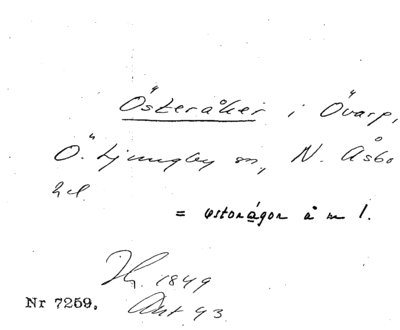 Österåker i Övarp,
Ö. Ljungby sn, N. Åsbo
hd.
= ostorågor å m l.
1849
Akt 93
Nr 7259.